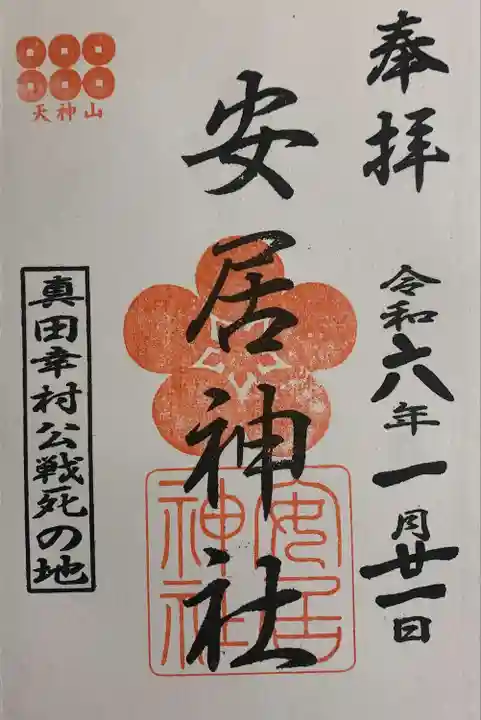 奉拝
令和六年一月廿一日
安居神社
安居神社
天神山
真田幸村公戦死の地